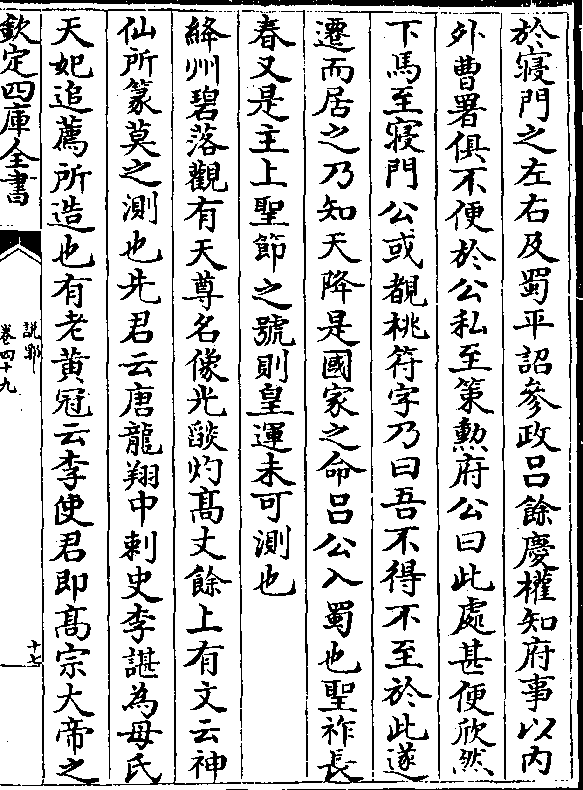 於寢門之左右及蜀平詔參政呂餘慶權知府事以内
外曹署俱不便於公私至策勲府公曰此處甚便欣然
下馬至寢門公或覩桃符字乃曰吾不得不至於此遂
遷而居之乃知天降是國家之命呂公入蜀也聖祚長
春又是主上聖節之號則皇運未可測也
絳州碧落觀有天尊名像光燄灼髙丈餘上有文云神
仙所篆莫之測也先君云唐龍翔中刺史李諶為母氏
天妃追薦所造也有老黄冠云李使君即髙宗大帝之
欽定四庫全書
說郛
卷四十九
十七